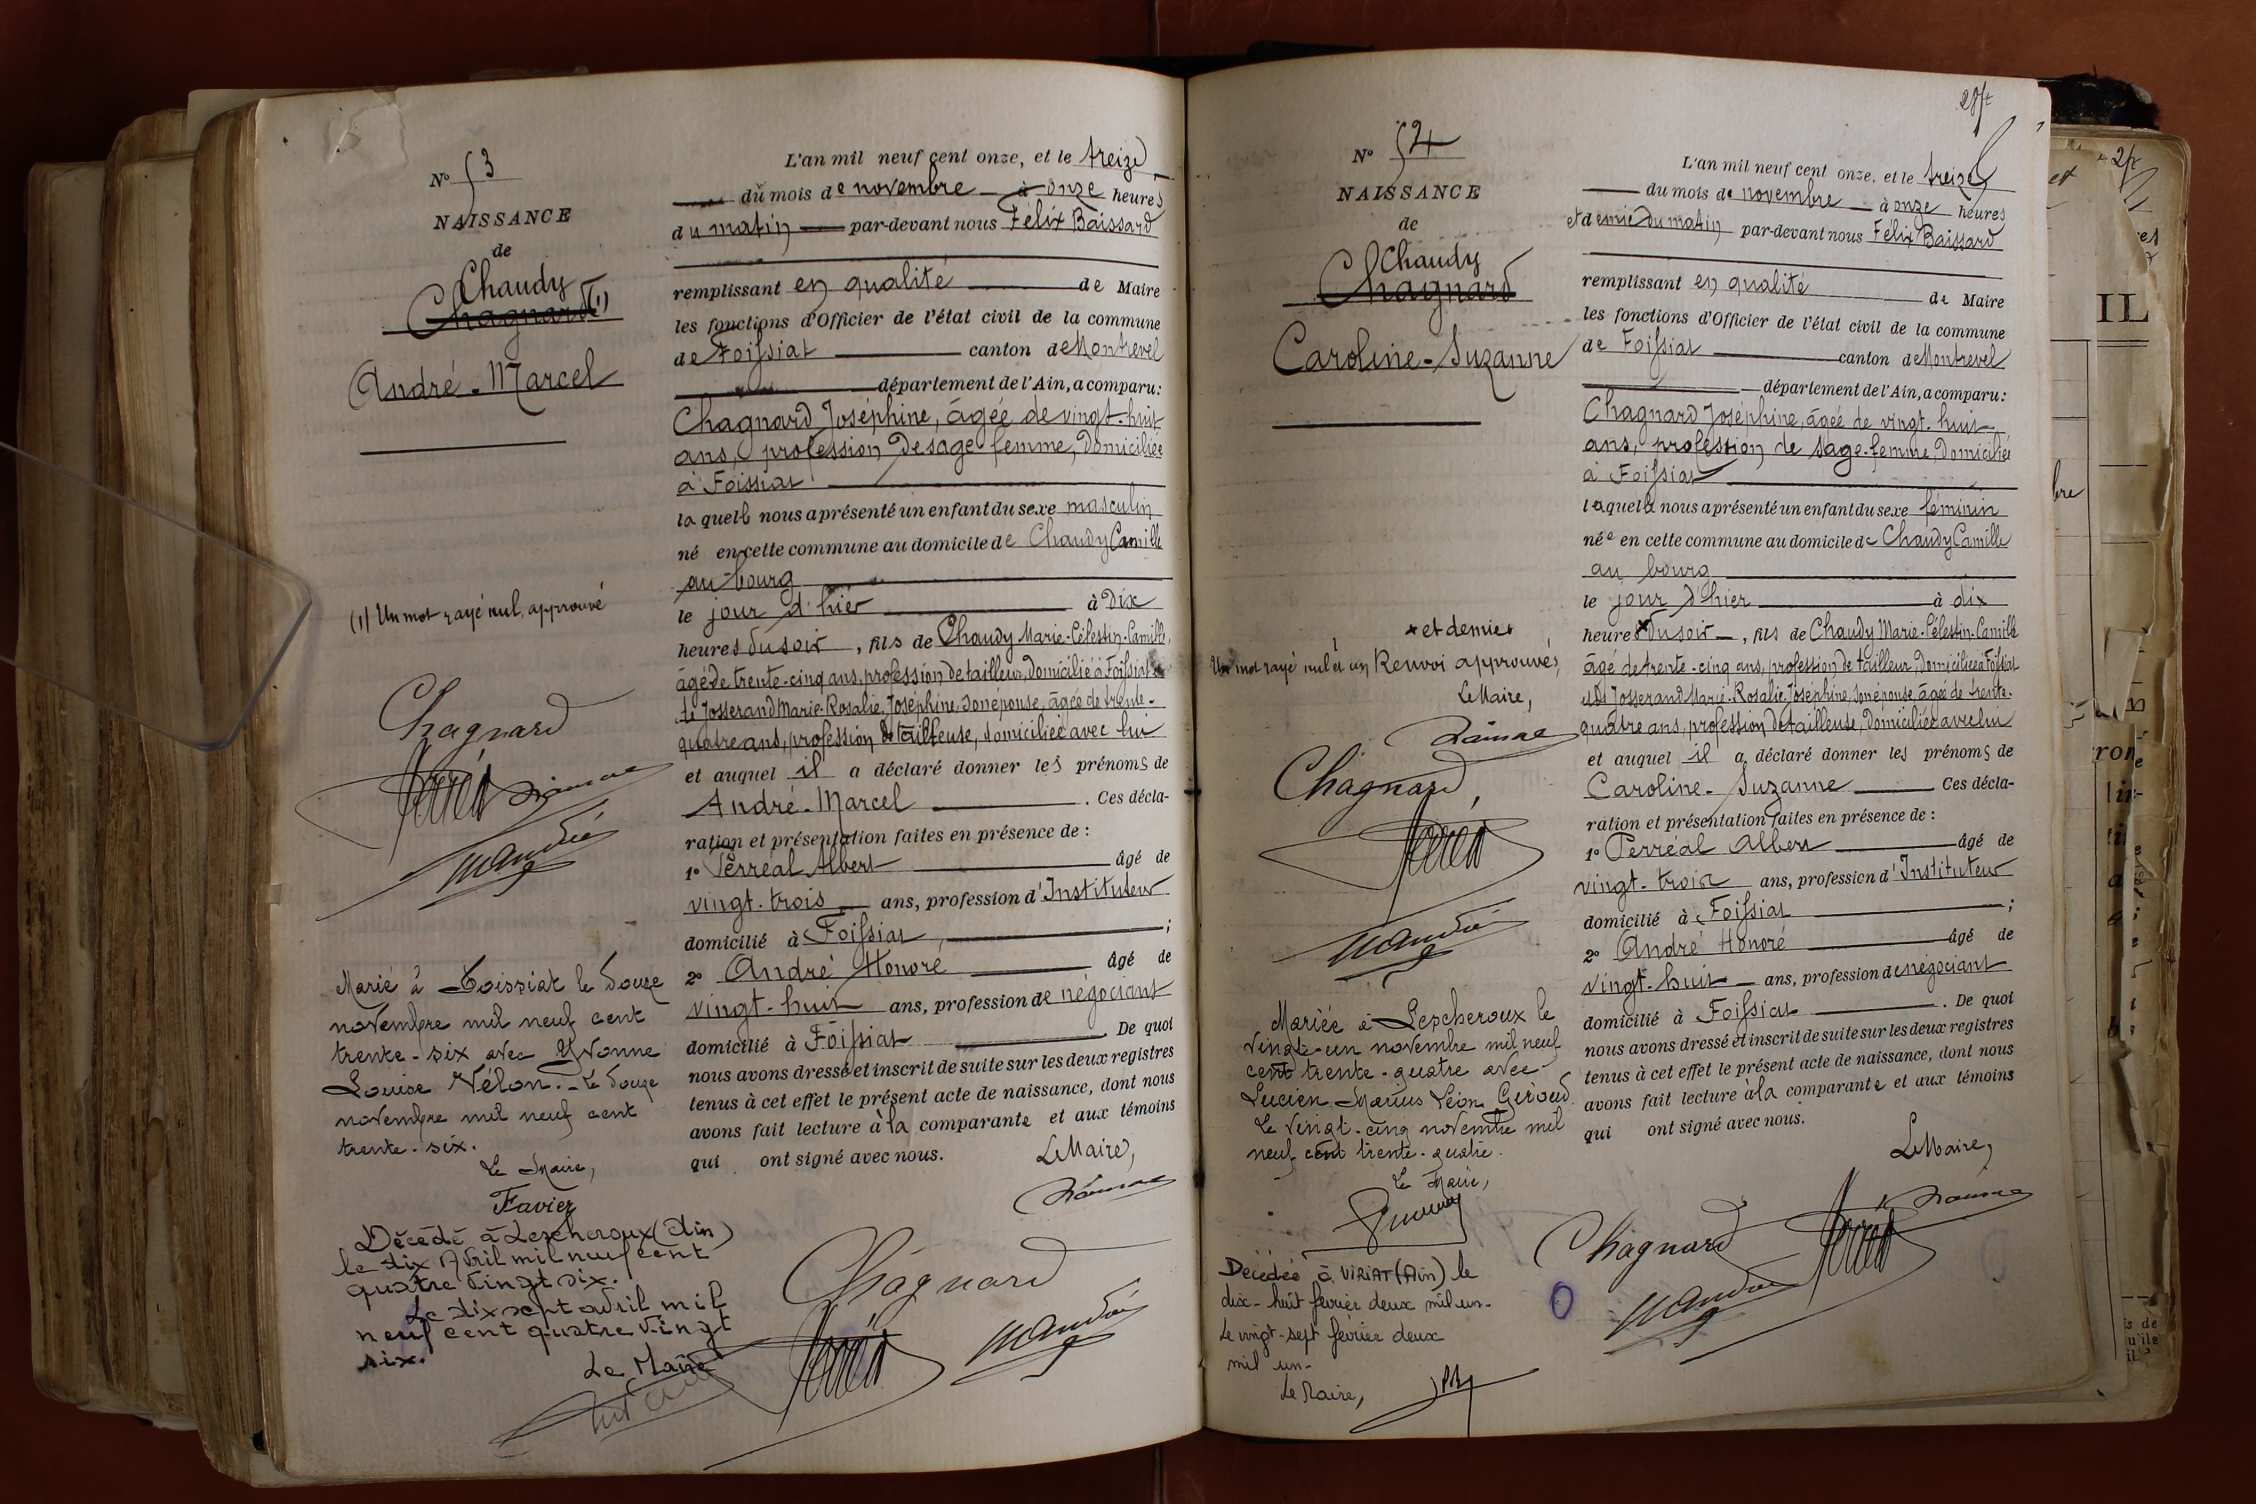 N° 53
NAISSANCE
de
Chaudy
Chagnard (1)
André-Marcel
(1) Un mot rayé nul, approuvé
Chagnard
Marié à Foissiat le douze
novembre mil neuf cent
trente-six avec Yvonne
Louise Vélon. - Le douze
novembre mil neuf cent
trente-six.
Le Maire,
Favier
Décédé à Lescheroux (Ain)
le dix Avril mil neuf cent
quatre vingt six.
Le dix sept avril mil
neuf cent quatre vingt
six.
Le Maire
L'an mil neuf cent onze, et le treize
du mois de novembre à onze heures
du matin par-devant nous Félix Baissard
remplissant en qualité de Maire
les fonctions d'Officier de l'état civil de la commune
de Foissiat canton de Montrevel
département de l'Ain, a comparu:
Chagnard Joséphine, âgée de vingt-huit
ans, profession de sage-femme, domiciliée
à Foissiat
laquelle nous a présenté un enfant du sexe masculin
né en cette commune au domicile de Chaudy Camille
au bourg
le jour d'hier à dix
heures du soir, fils de Chaudy Marie-Célestin-Camille,
âgé de trente-cinq ans, profession de tailleur, domicilié à Foissiat
de Josserand Marie-Rosalie, Joséphine, son épouse, âgée de trente-
quatre ans, profession de tailleuse, domiciliée avec lui
et auquel il a déclaré donner les prénoms de
André-Marcel. Ces décla-
ration et présentation faites en présence de :
1° Perréal Albert âgé de
vingt-trois ans, profession d'Instituteur
domicilié à Foissiat ;
2° André Honoré âgé de
vingt-huit ans, profession de négociant
domicilié à Foissiat De quoi
nous avons dressé et inscrit de suite sur les deux registres
tenus à cet effet le présent acte de naissance, dont nous
avons fait lecture à la comparante et aux témoins
qui ont signé avec nous.
Le Maire,
Chagnard
N° 54
NAISSANCE
de
Chaudy
Chagnard
Caroline-Suzanne
x et demie x
Un mot rayé nul et un Renvoi approuvés
Le Maire,
Chagnard,
Mariée à Lescheroux le
vingt-un novembre mil neuf
cent trente-quatre avec
Lucien Marius Léon Giroud.
Le vingt-cinq novembre mil
neuf cent trente-quatre.
Le Maire,
Décédée à VIRIAT (Ain) le
dix-huit février deux mil un-
Le vingt-sept février deux
mil un-
Le Maire,
L'an mil neuf cent onze, et le treize
du mois de novembre à onze heures
et demie du matin par-devant nous Félix Baissard
remplissant en qualité de Maire
les fonctions d'Officier de l'état civil de la commune
de Foissiat canton de Montrevel
département de l'Ain, a comparu:
Chagnard Joséphine, âgée de vingt-huit
ans, profession de sage-femme, domiciliée
à Foissiat
laquelle nous a présenté un enfant du sexe féminin
née en cette commune au domicile de Chaudy Camille
au bourg
le jour d'hier à dix
heures x du soir, fils de Chaudy Marie-Célestin-Camille
âgé de trente-cinq ans, profession de tailleur, domicilié à Foissiat
et de Josserand Marie-Rosalie, Joséphine, son épouse, âgée de trente-
quatre ans, profession de tailleuse, domiciliée avec lui
et auquel il a déclaré donner les prénoms de
Caroline-Suzanne Ces décla-
ration et présentation faites en présence de :
1° Perréal Albert âgé de
vingt-trois ans, profession d'Instituteur
domicilié à Foissiat ;
2° André Honoré âgé de
vingt-huit ans, profession de négociant
domicilié à Foissiat. De quoi
nous avons dressé et inscrit de suite sur les deux registres
tenus à cet effet le présent acte de naissance, dont nous
avons fait lecture à la comparante et aux témoins
qui ont signé avec nous.
Le Maire,
Chagnard